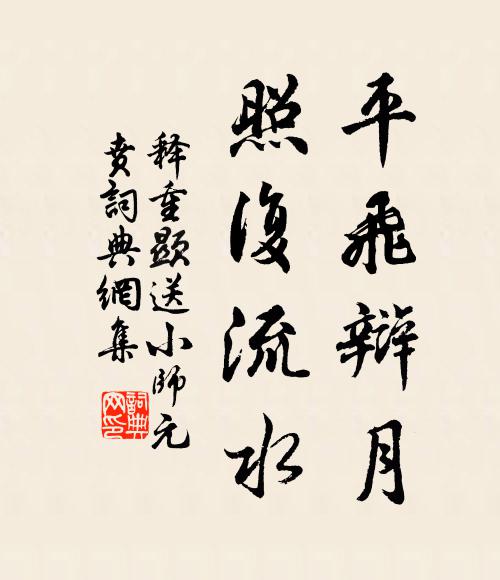 平飛辯月
照復流水
释重顯送小師元
賁詞典網集
詞典
网印